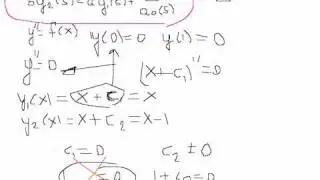 by₂(s) = αy₁(s) a₀(s)
y'' = f(x) y(0) = 0 y(1) = 0
y'' = 0 (x + c₁)'' = 0
y₁(x) = x + c₁ = x
y₂(x) = x + c₂ = x - 1
c₁ = 0 c₂ ± 0
= 0 1 + c₂ = 0